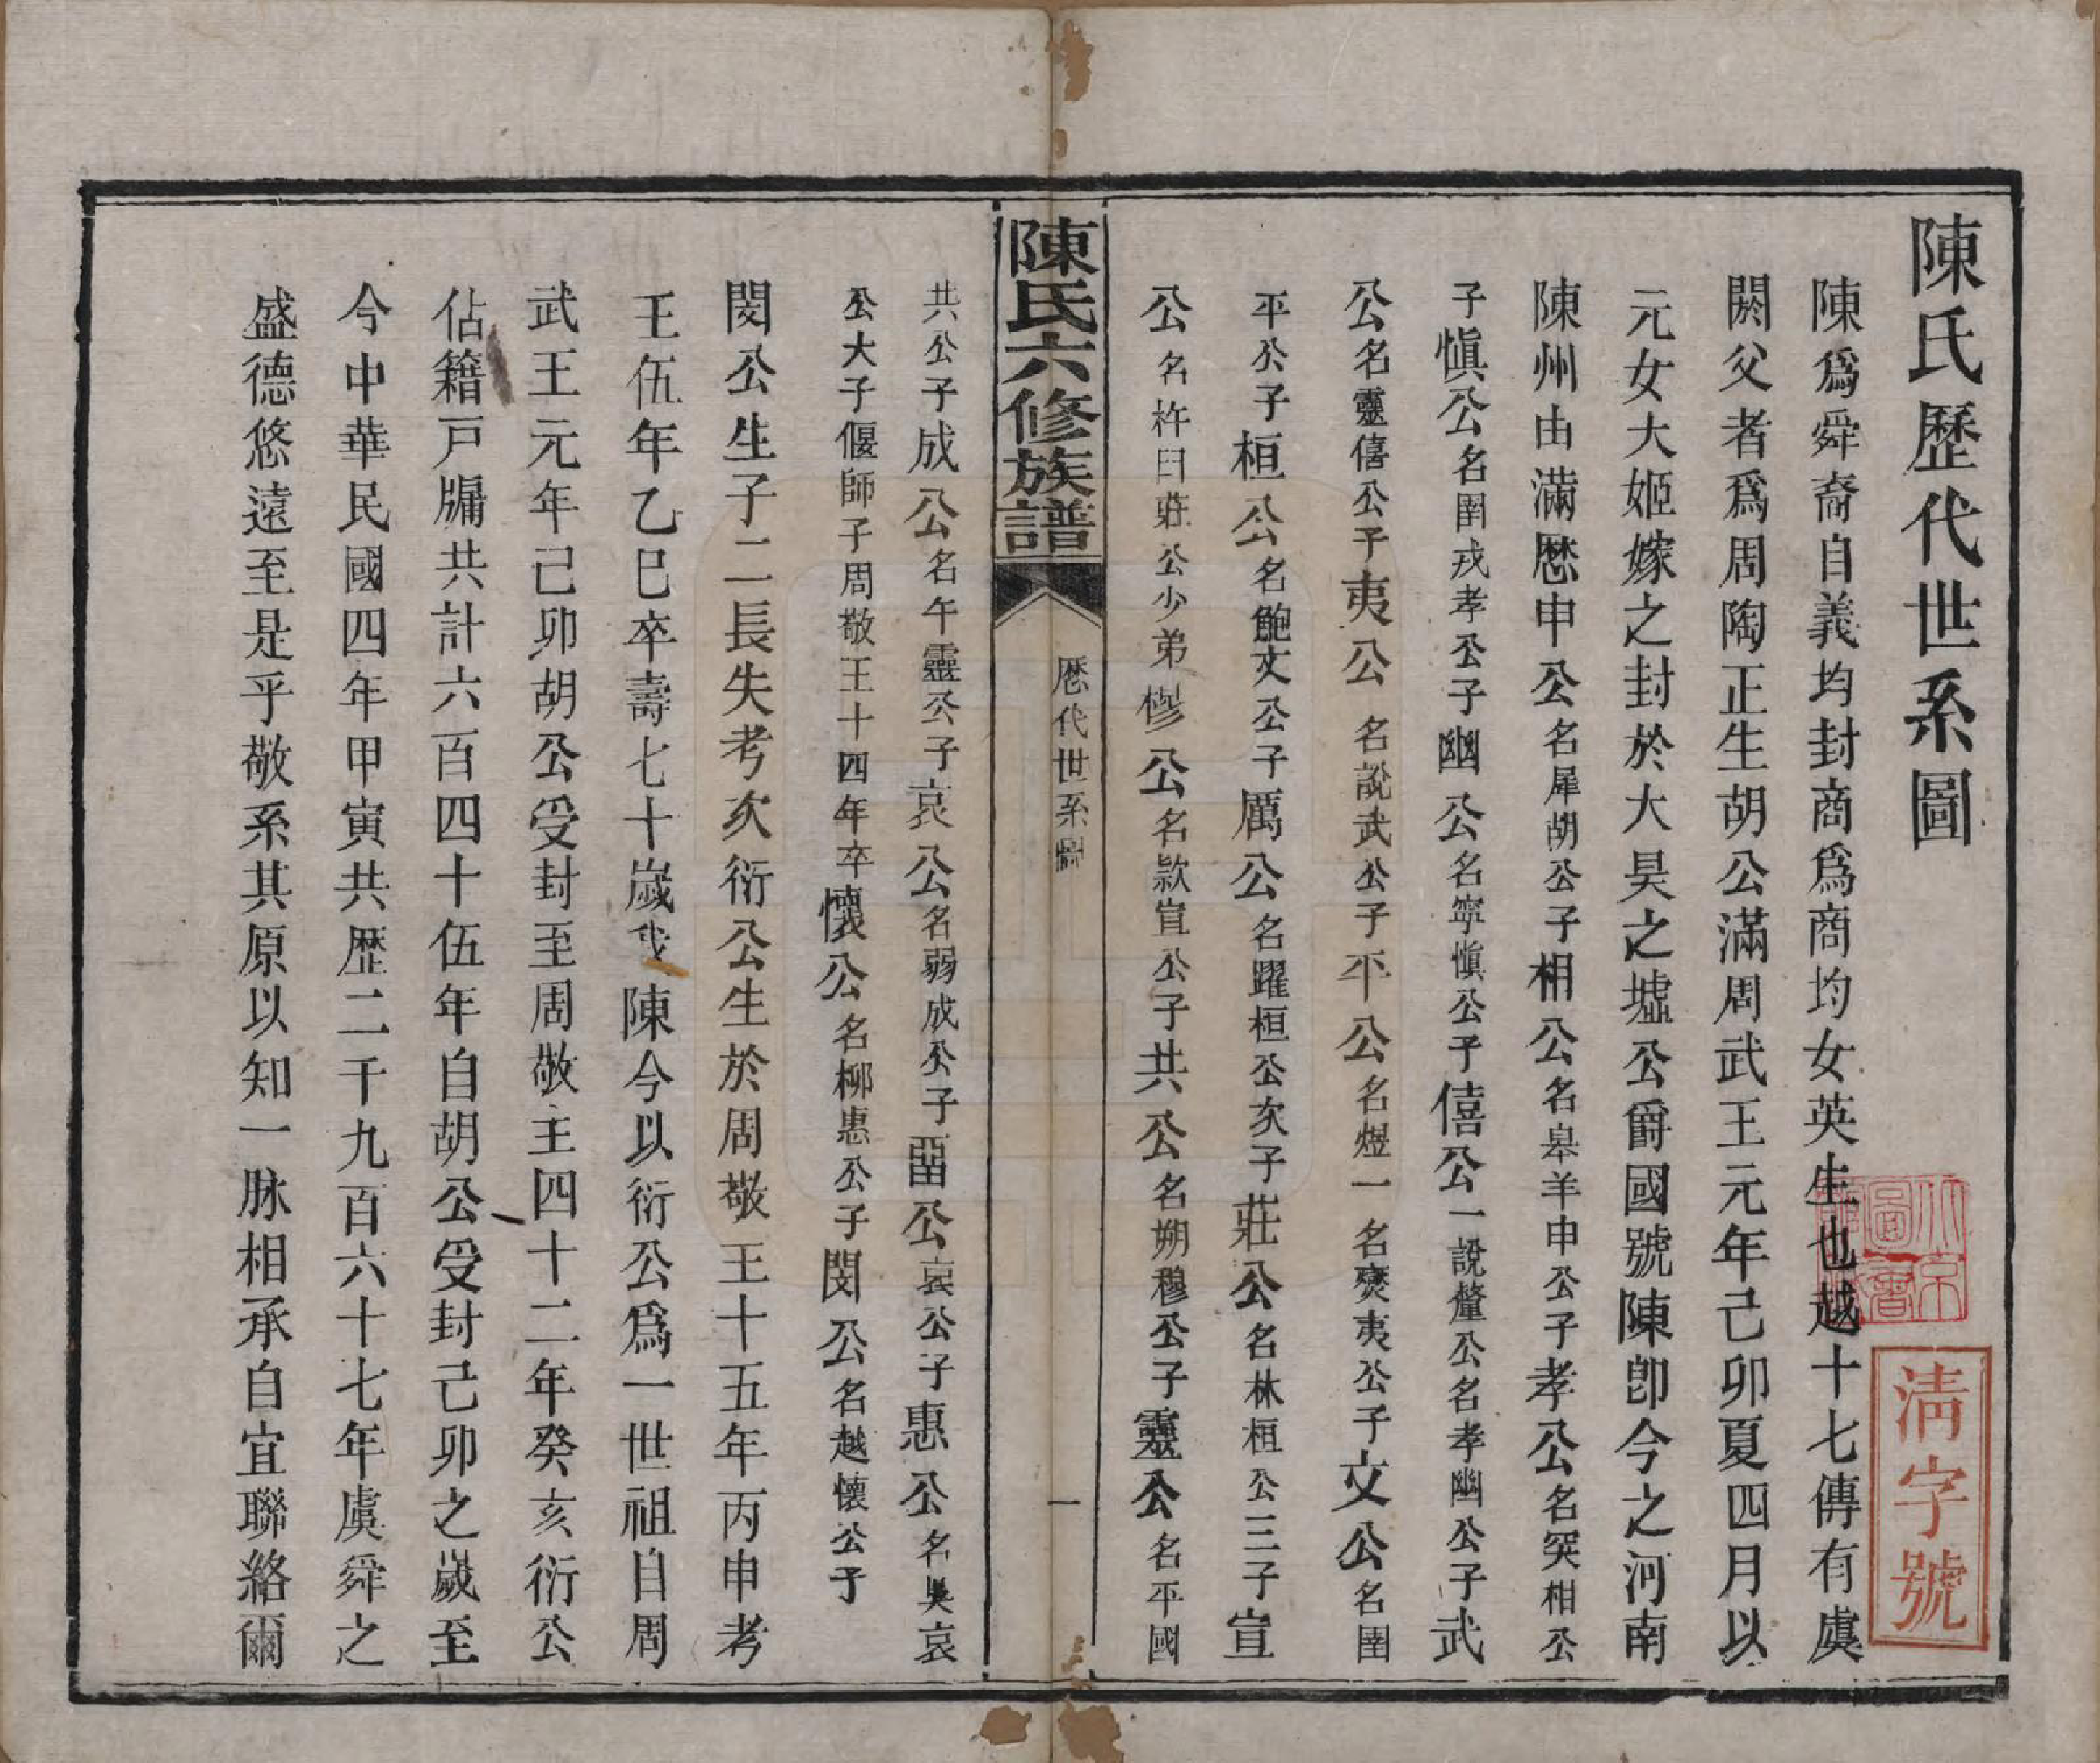 陳氏歷代世系圖
陳爲舜裔自義均封商爲商均女英生也越十七傳有虞
閼父者爲周陶正生胡公滿周武王元年己卯夏四月以
元女大姬嫁之封於大昊之墟公爵國號陳卽今之河南
陳州由滿厯申公名犀胡公子相公名皋羊申公子孝公名突相公
子愼公名圉戎孝公子幽公名寧愼公子僖公一說釐公名孝幽公子武
公名靈僖公子夷公名說武公子平公名煜一名燮夷公子文公名圉
平公子桓公名鮑文公子厲公名躍桓公次子莊公名林桓公三子宣
公名杵臼莊公少弟穆公名款宣公子共公名朔穆公子靈公名平國
陳氏六修族譜
厯代世系圖
一
共公子成公名午靈公子哀公名弱成公子畱公哀公子惠公名吳哀
公大子偃師子周敬王十四年卒懷公名柳惠公子閔公名越懷公子
閔公生子二長失考次衍公生於周敬王十五年丙申考
王伍年乙巳卒壽七十歲我陳今以衍公爲一世祖自周
武王元年己卯胡公受封至周敬王四十二年癸亥衍公
佔籍戸牖共計六百四十伍年自胡公受封己卯之歲至
今中華民國四年甲寅共歷二千九百六十七年虞舜之
盛德悠遠至是乎敬系其原以知一脉相承自宜聯絡爾
清字號